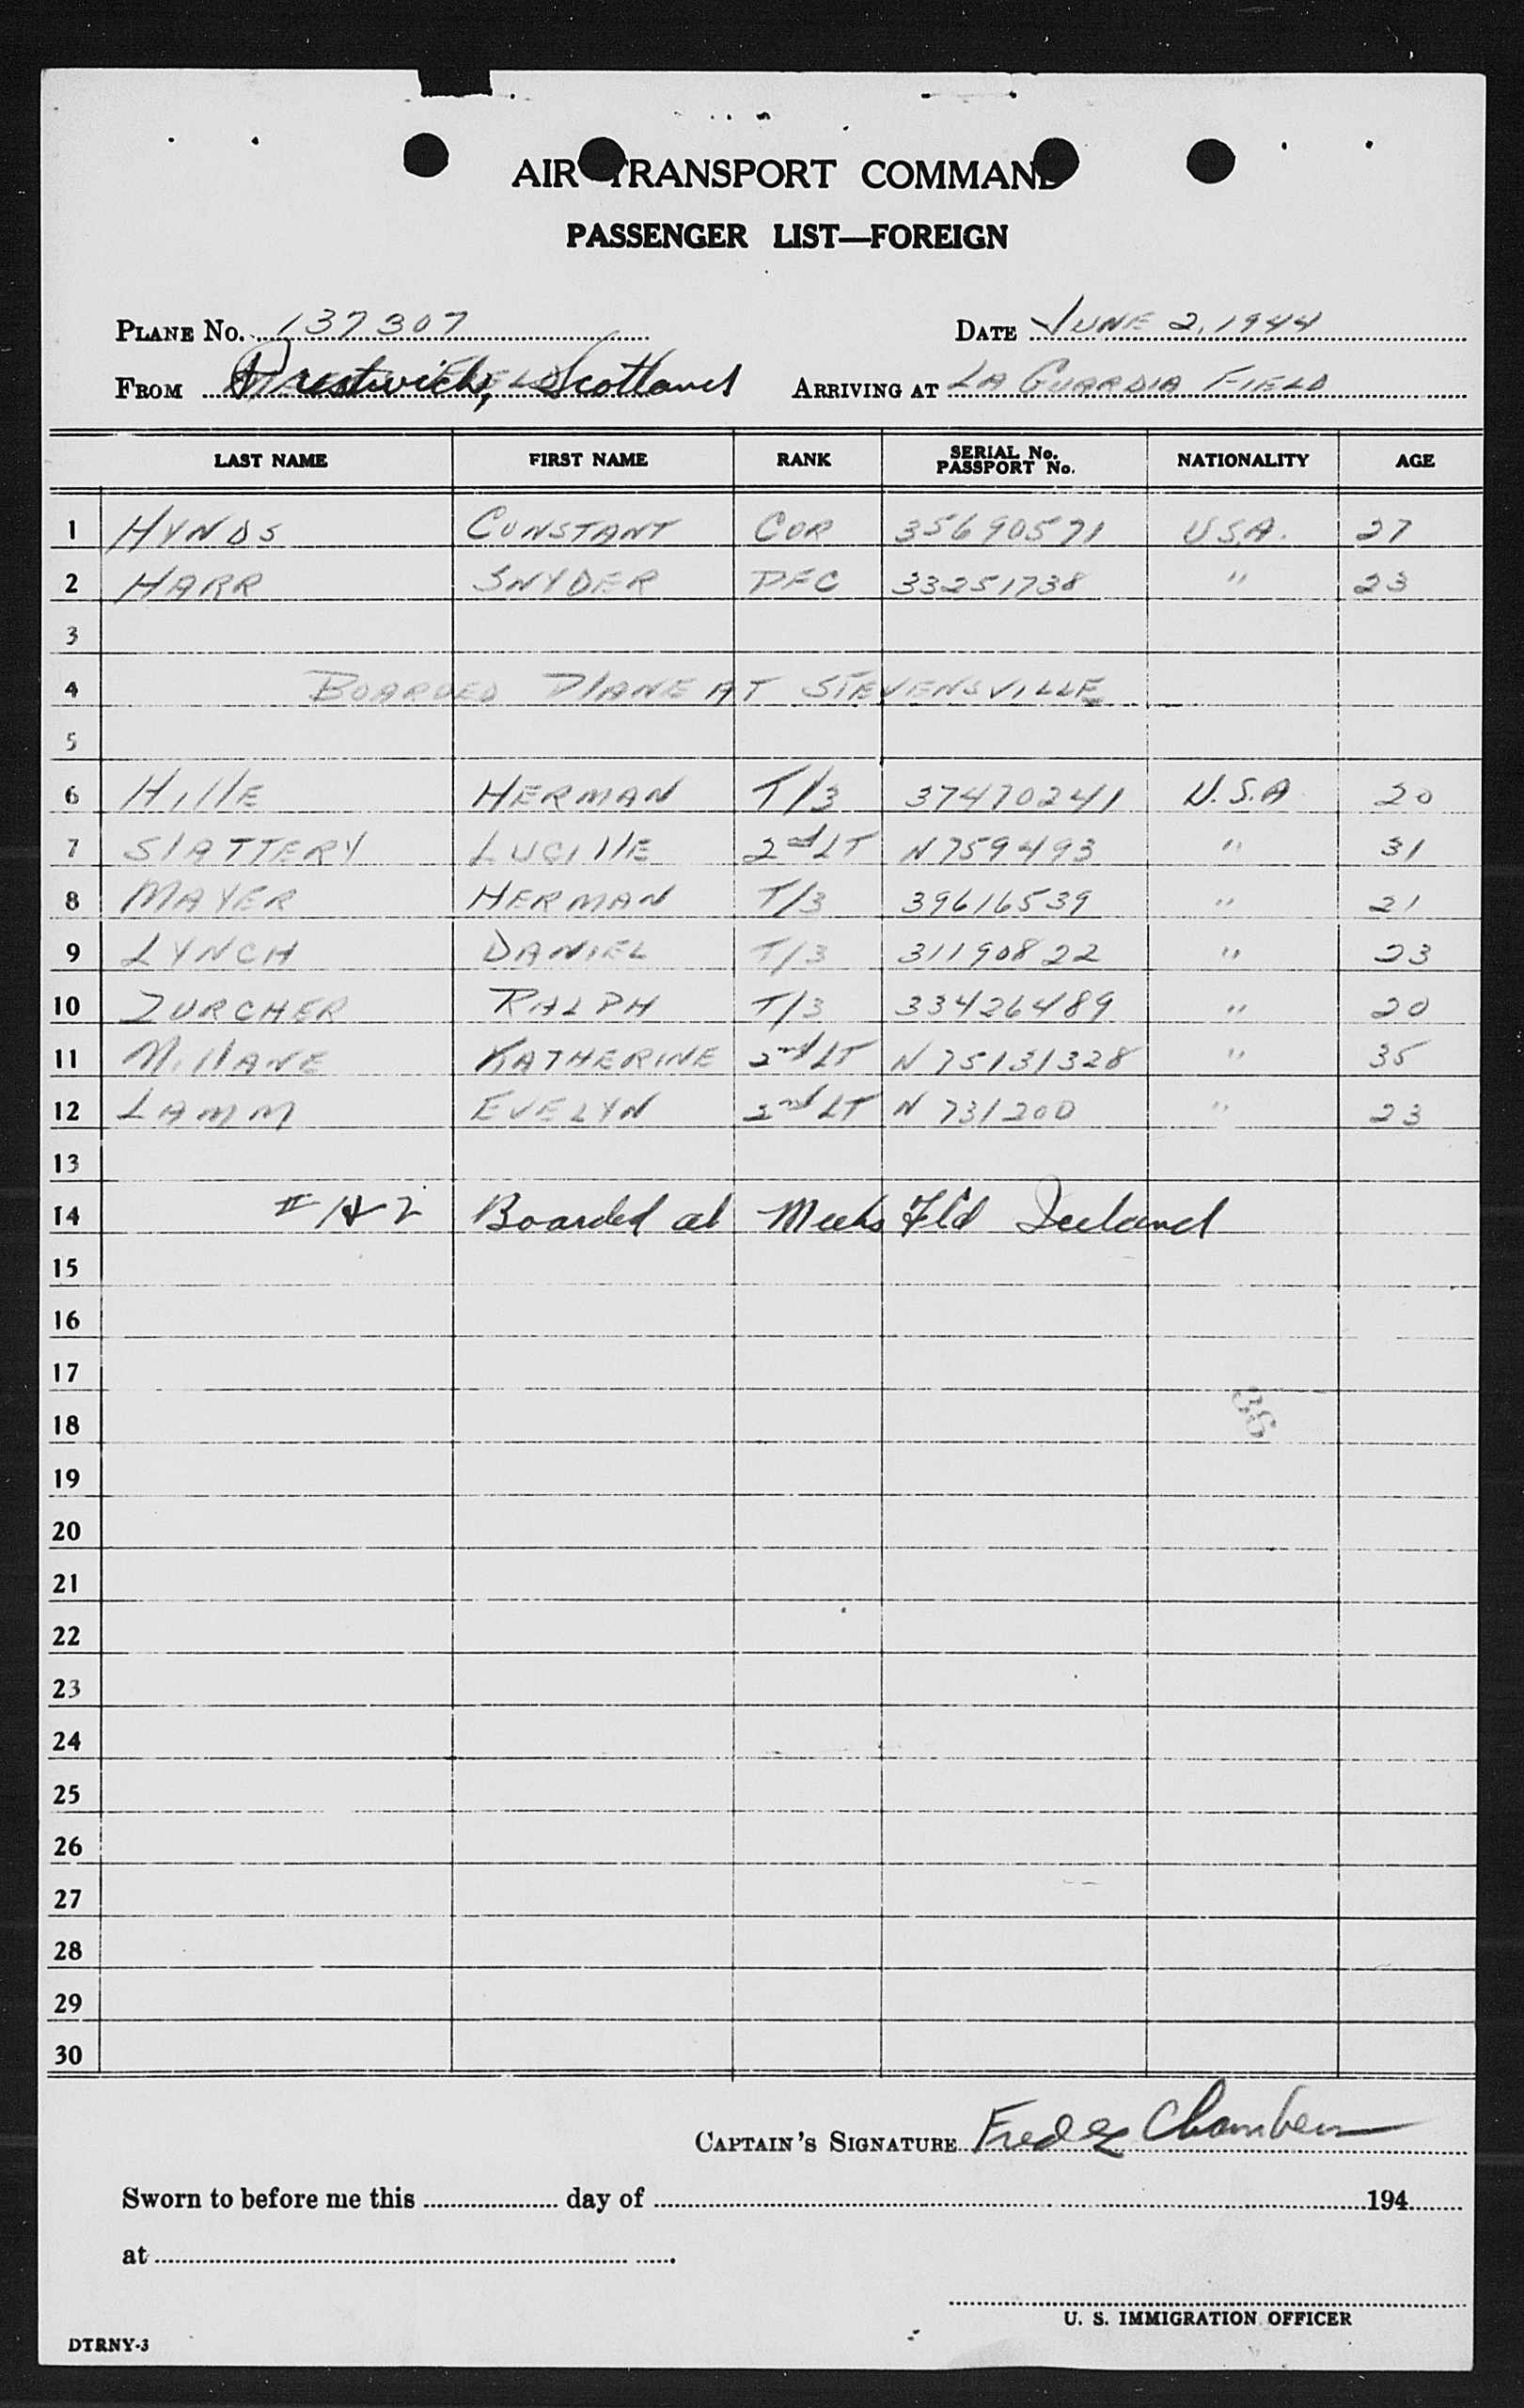 AIR TRANSPORT COMMAND
PASSENGER LIST—FOREIGN
PLANE No. 137307 DATE JUNE 2, 1944
FROM Prestwick, Scotland ARRIVING AT LA GUARDIA FIELD
LAST NAME FIRST NAME RANK SERIAL No. PASSPORT No. NATIONALITY AGE
1 HYNDS CONSTANT COR 35690571 U.S.A. 27
2 HARR SNYDER PFC 33251738 " 23
3
4 BOARDED PLANE AT STEVENSVILLE
5
6 HILLE HERMAN T/3 37470241 U.S.A. 20
7 SLATTERY LUCILLE 2nd LT N759493 " 31
8 MAYER HERMAN T/3 39616539 " 21
9 LYNCH DANIEL T/3 31190822 " 23
10 ZURCHER RALPH T/3 33426489 " 20
11 MILLANE KATHERINE 2nd LT N75131328 " 35
12 LAMM EVELYN 2nd LT N 731200 " 23
13
14 # 1 & 2 Boarded at Meeks Fld Iceland
15
16
17
18 36
19
20
21
22
23
24
25
26
27
28
29
30
CAPTAIN'S SIGNATURE Fred Chambers
Sworn to before me this day of 194
at
U. S. IMMIGRATION OFFICER
DTRNY-3